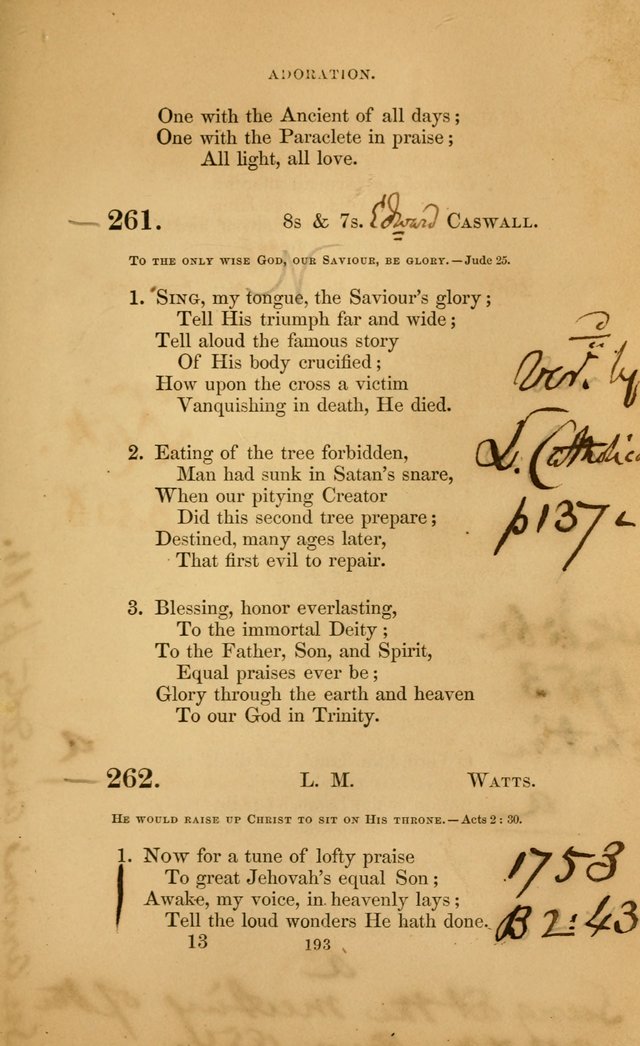 ADORATION.
One with the Ancient of all days;
One with the Paraclete in praise;
All light, all love.
261. 8s & 7s. Edward CASWALL.
TO THE ONLY WISE GOD, OUR SAVIOUR, BE GLORY.—Jude 25.
1. SING, my tongue, the Saviour's glory;
Tell His triumph far and wide;
Tell aloud the famous story
Of His body crucified;
How upon the cross a victim
Vanquishing in death, He died.
Ver. by
L. Catholica
p 137
2. Eating of the tree forbidden,
Man had sunk in Satan's snare,
When our pitying Creator
Did this second tree prepare;
Destined, many ages later,
That first evil to repair.
3. Blessing, honor everlasting,
To the immortal Deity;
To the Father, Son, and Spirit,
Equal praises ever be;
Glory through the earth and heaven
To our God in Trinity.
262. L. M. WATTS.
HE WOULD RAISE UP CHRIST TO SIT ON HIS THRONE.—Acts 2:30.
1. NOW for a tune of lofty praise
To great Jehovah's equal Son;
Awake, my voice, in heavenly lays;
Tell the loud wonders He hath done.
1753
B 2:43
13 193